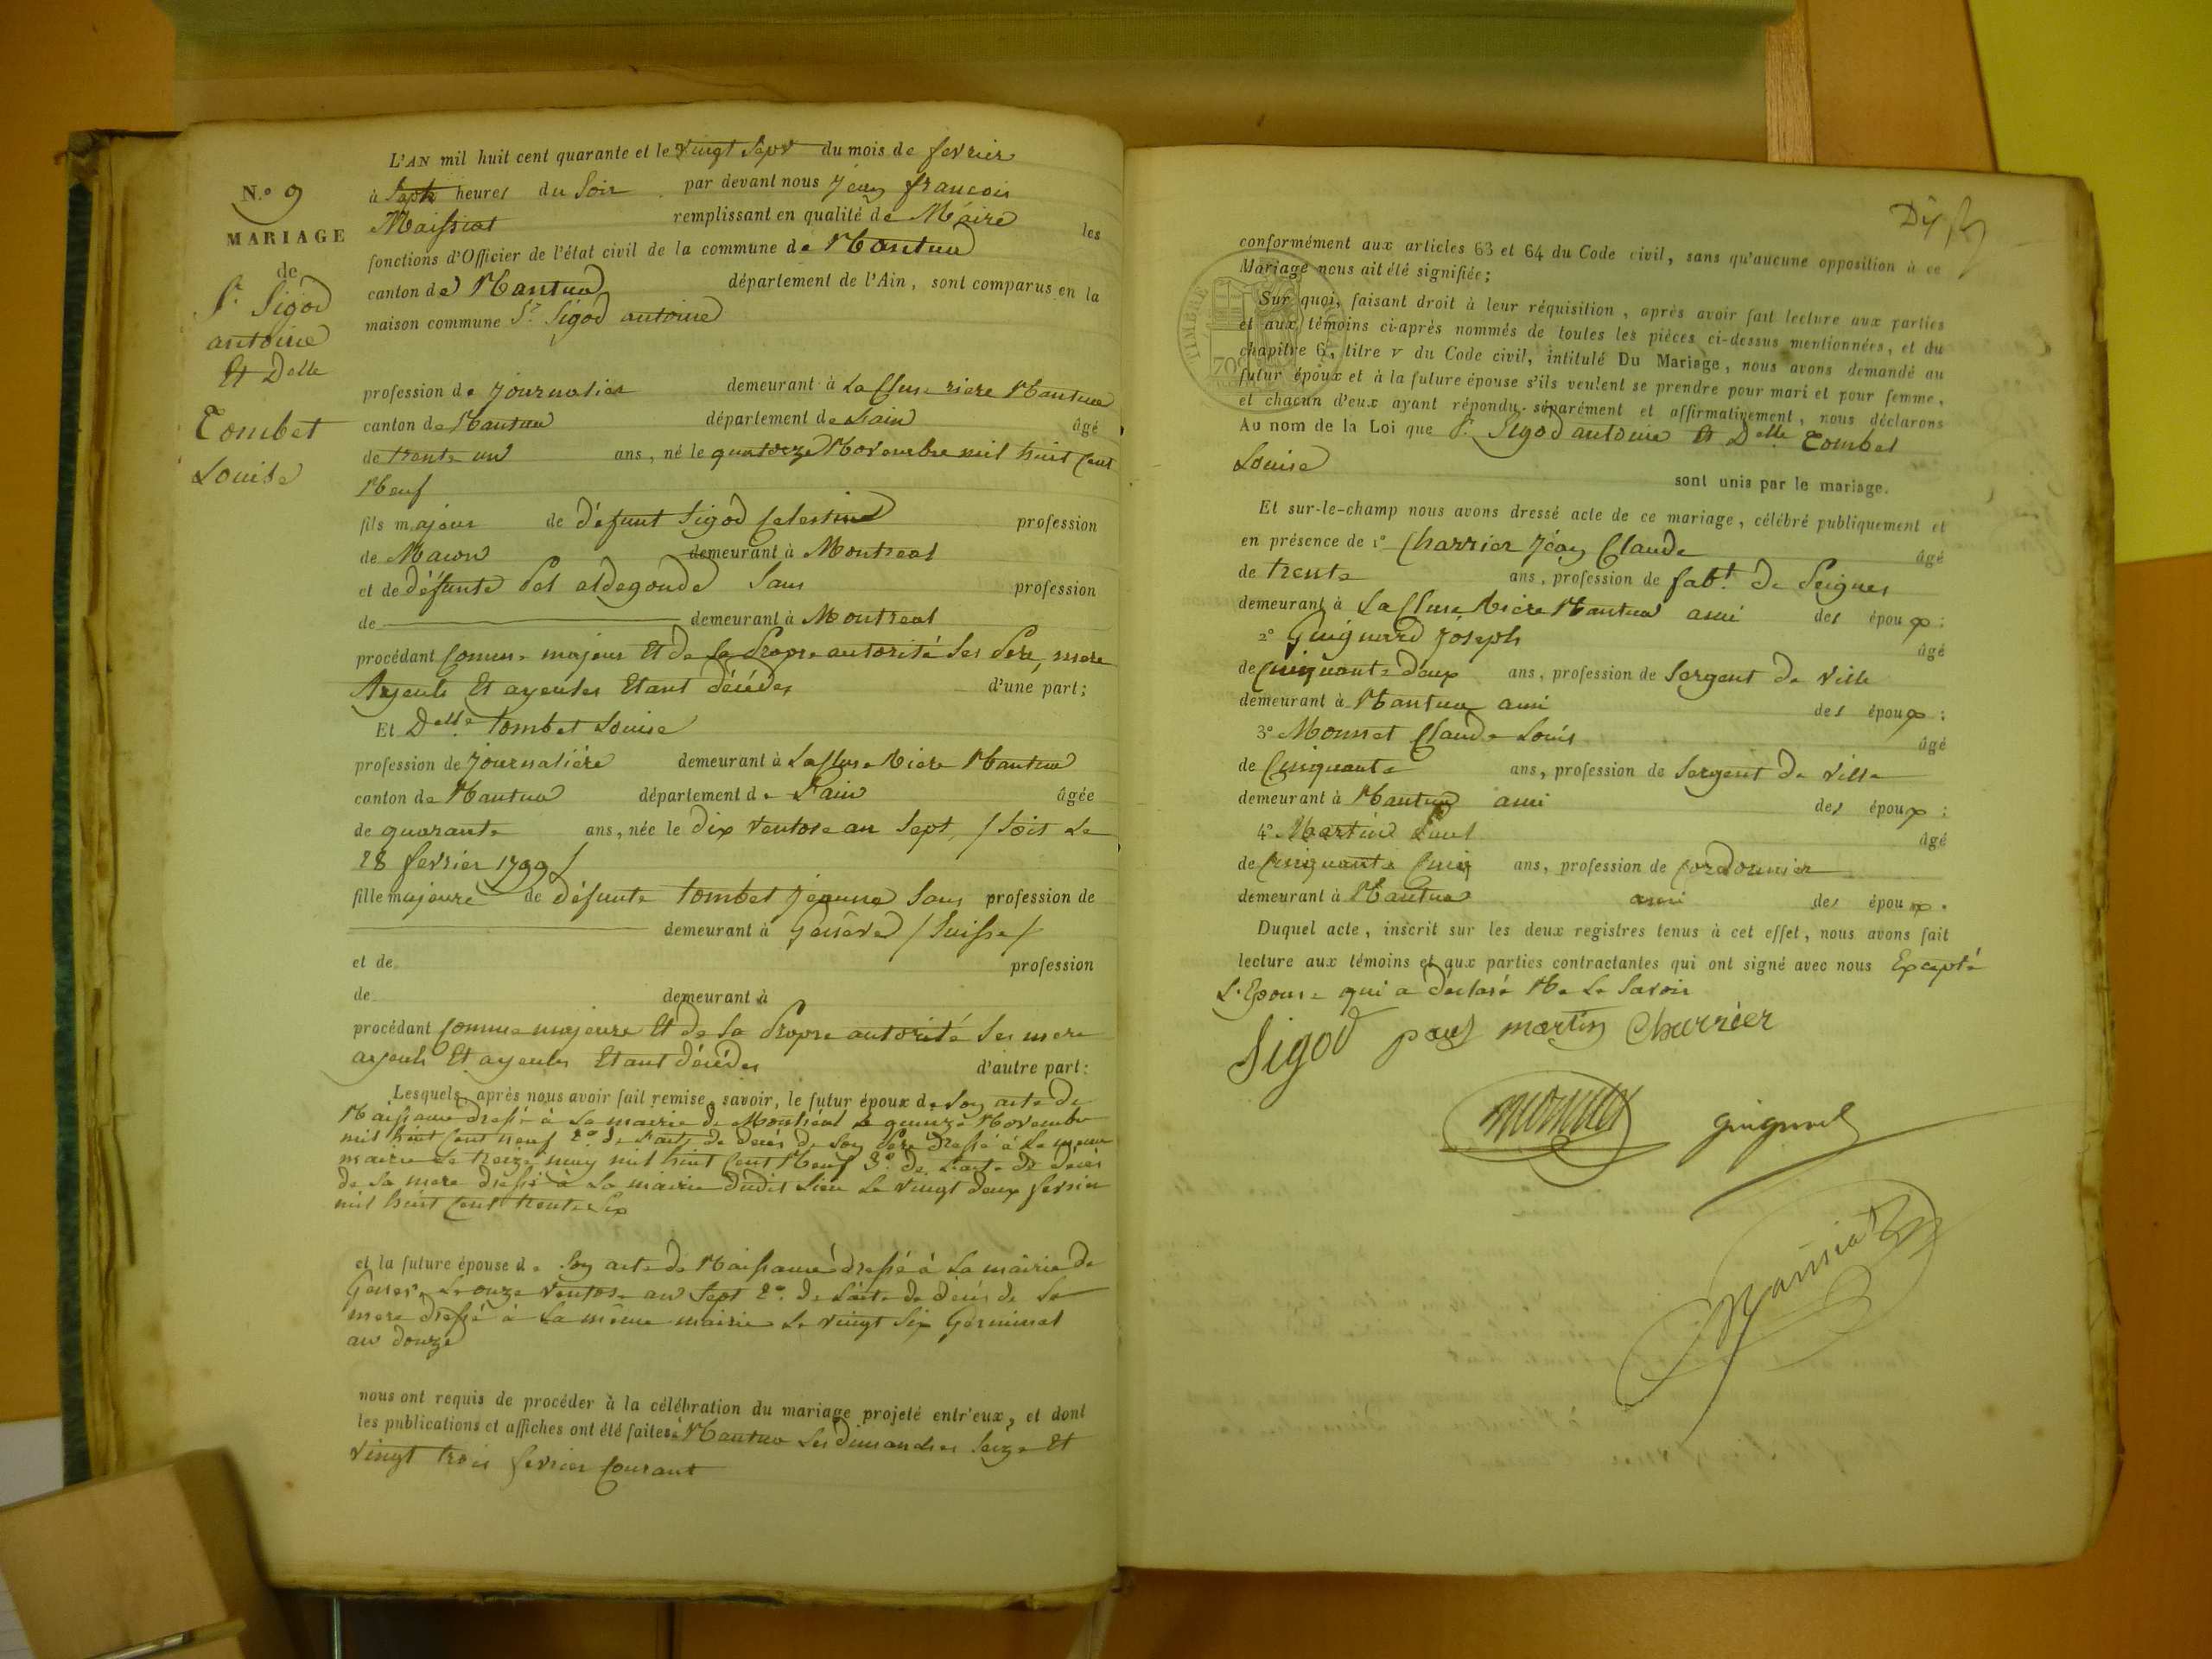 N.º 9
MARIAGE
de
Sr. Sigod
antoine
Et Delle
Tombet
Louise
L'AN mil huit cent quarante et le vingt Sept du mois de fevrier
à Sept heures du Soir par devant nous Jean francois
Maissiat remplissant en qualité de Maire les
fonctions d'Officier de l'état civil de la commune de Nantua
canton de Nantua département de l'Ain, sont comparus en la
maison commune Sr. Sigod antoine
profession de journalier demeurant à La Cluse riere Nantua
canton de Nantua département de L'ain âgé
de trente un ans, né le quatorze Novembre mil huit Cent
Neuf
fils majeur de défunt Sigod Celestin profession
de Macon demeurant à Montreal
et de défunte Pol aldegonde Sans profession
de demeurant à Montreal
procédant Comme majeur Et de Sa Propre autorité Ses Pere, mere
Ayeuls Et ayeules Etant décédés d'une part;
Et Delle tombet Louise
profession de journalière demeurant à La Cluse Riere Nantua
canton de Nantua département de L'ain âgée
de quarante ans, née le dix Ventose an Sept, / Soit Le
28 fevrier 1799 /
fille majeure de défunte tombet jeanne Sans profession de
demeurant à Genève / Suisse /
et de profession
de demeurant à
procédant Comme majeure Et de Sa Propre autorité Ses mere
ayeuls Et ayeules Etant décédés d'autre part:
Lesquels, après nous avoir fait remise, savoir, le futur époux de Son acte de
Naissance dressé à La mairie de Montréal Le quinze Novembre
mil huit Cent neuf 2º de L'acte de décès de Son Pere dressé à La meme
mairie Le treize may mil huit Cent Neuf 3º de L'acte de décès
de Sa mere dressé à La mairie dudit Lieu Le vingt deux fevrier
mil huit Cent trente Six
et la future épouse de Son acte de Naissance dressé à La mairie de
Geneve Le onze Ventose an Sept 2º de L'acte de décès de Sa
mere dressé à La même mairie Le vingt Six Germinal
an douze
nous ont requis de procéder à la célébration du mariage projeté entr'eux, et dont
les publications et affiches ont été faites à Nantua Les dimanches Seize Et
vingt trois fevrier Courant
Dix
conformément aux articles 63 et 64 du Code civil, sans qu'aucune opposition à ce
Mariage nous ait été signifiée;
Sur quoi, faisant droit à leur réquisition, après avoir fait lecture aux parties
et aux témoins ci-après nommés de toutes les pièces ci-dessus mentionnées, et du
chapitre 6, titre v du Code civil, intitulé Du Mariage, nous avons demandé au
futur époux et à la future épouse s'ils veulent se prendre pour mari et pour femme,
et chacun d'eux ayant répondu séparément et affirmativement, nous déclarons
Au nom de la Loi que Sr. Sigod antoine Et Delle Tombet
Louise
sont unis par le mariage.
Et sur-le-champ nous avons dressé acte de ce mariage, célébré publiquement et
en présence de 1º Charrier Jéan Claude âgé
de trente ans, profession de fabt. de Peignes
demeurant à La Cluse Riere Nantua ami des époux;
2º Guignard Joseph âgé
de Cinquante deux ans, profession de Sergent de Ville
demeurant à Nantua ami des époux;
3º Monnet Claude Louis âgé
de Cinquante ans, profession de Sergent de Ville
demeurant à Nantua ami des époux;
4º Martin Paul âgé
de Cinquante Cinq ans, profession de Cordonnier
demeurant à Nantua ami des époux.
Duquel acte, inscrit sur les deux registres tenus à cet effet, nous avons fait
lecture aux témoins et aux parties contractantes qui ont signé avec nous Excepté
L'Epouse qui a déclaré Ne Le Savoir
Sigod paul martin Charrier
monnet guignard
Maissiat
TIMBRE